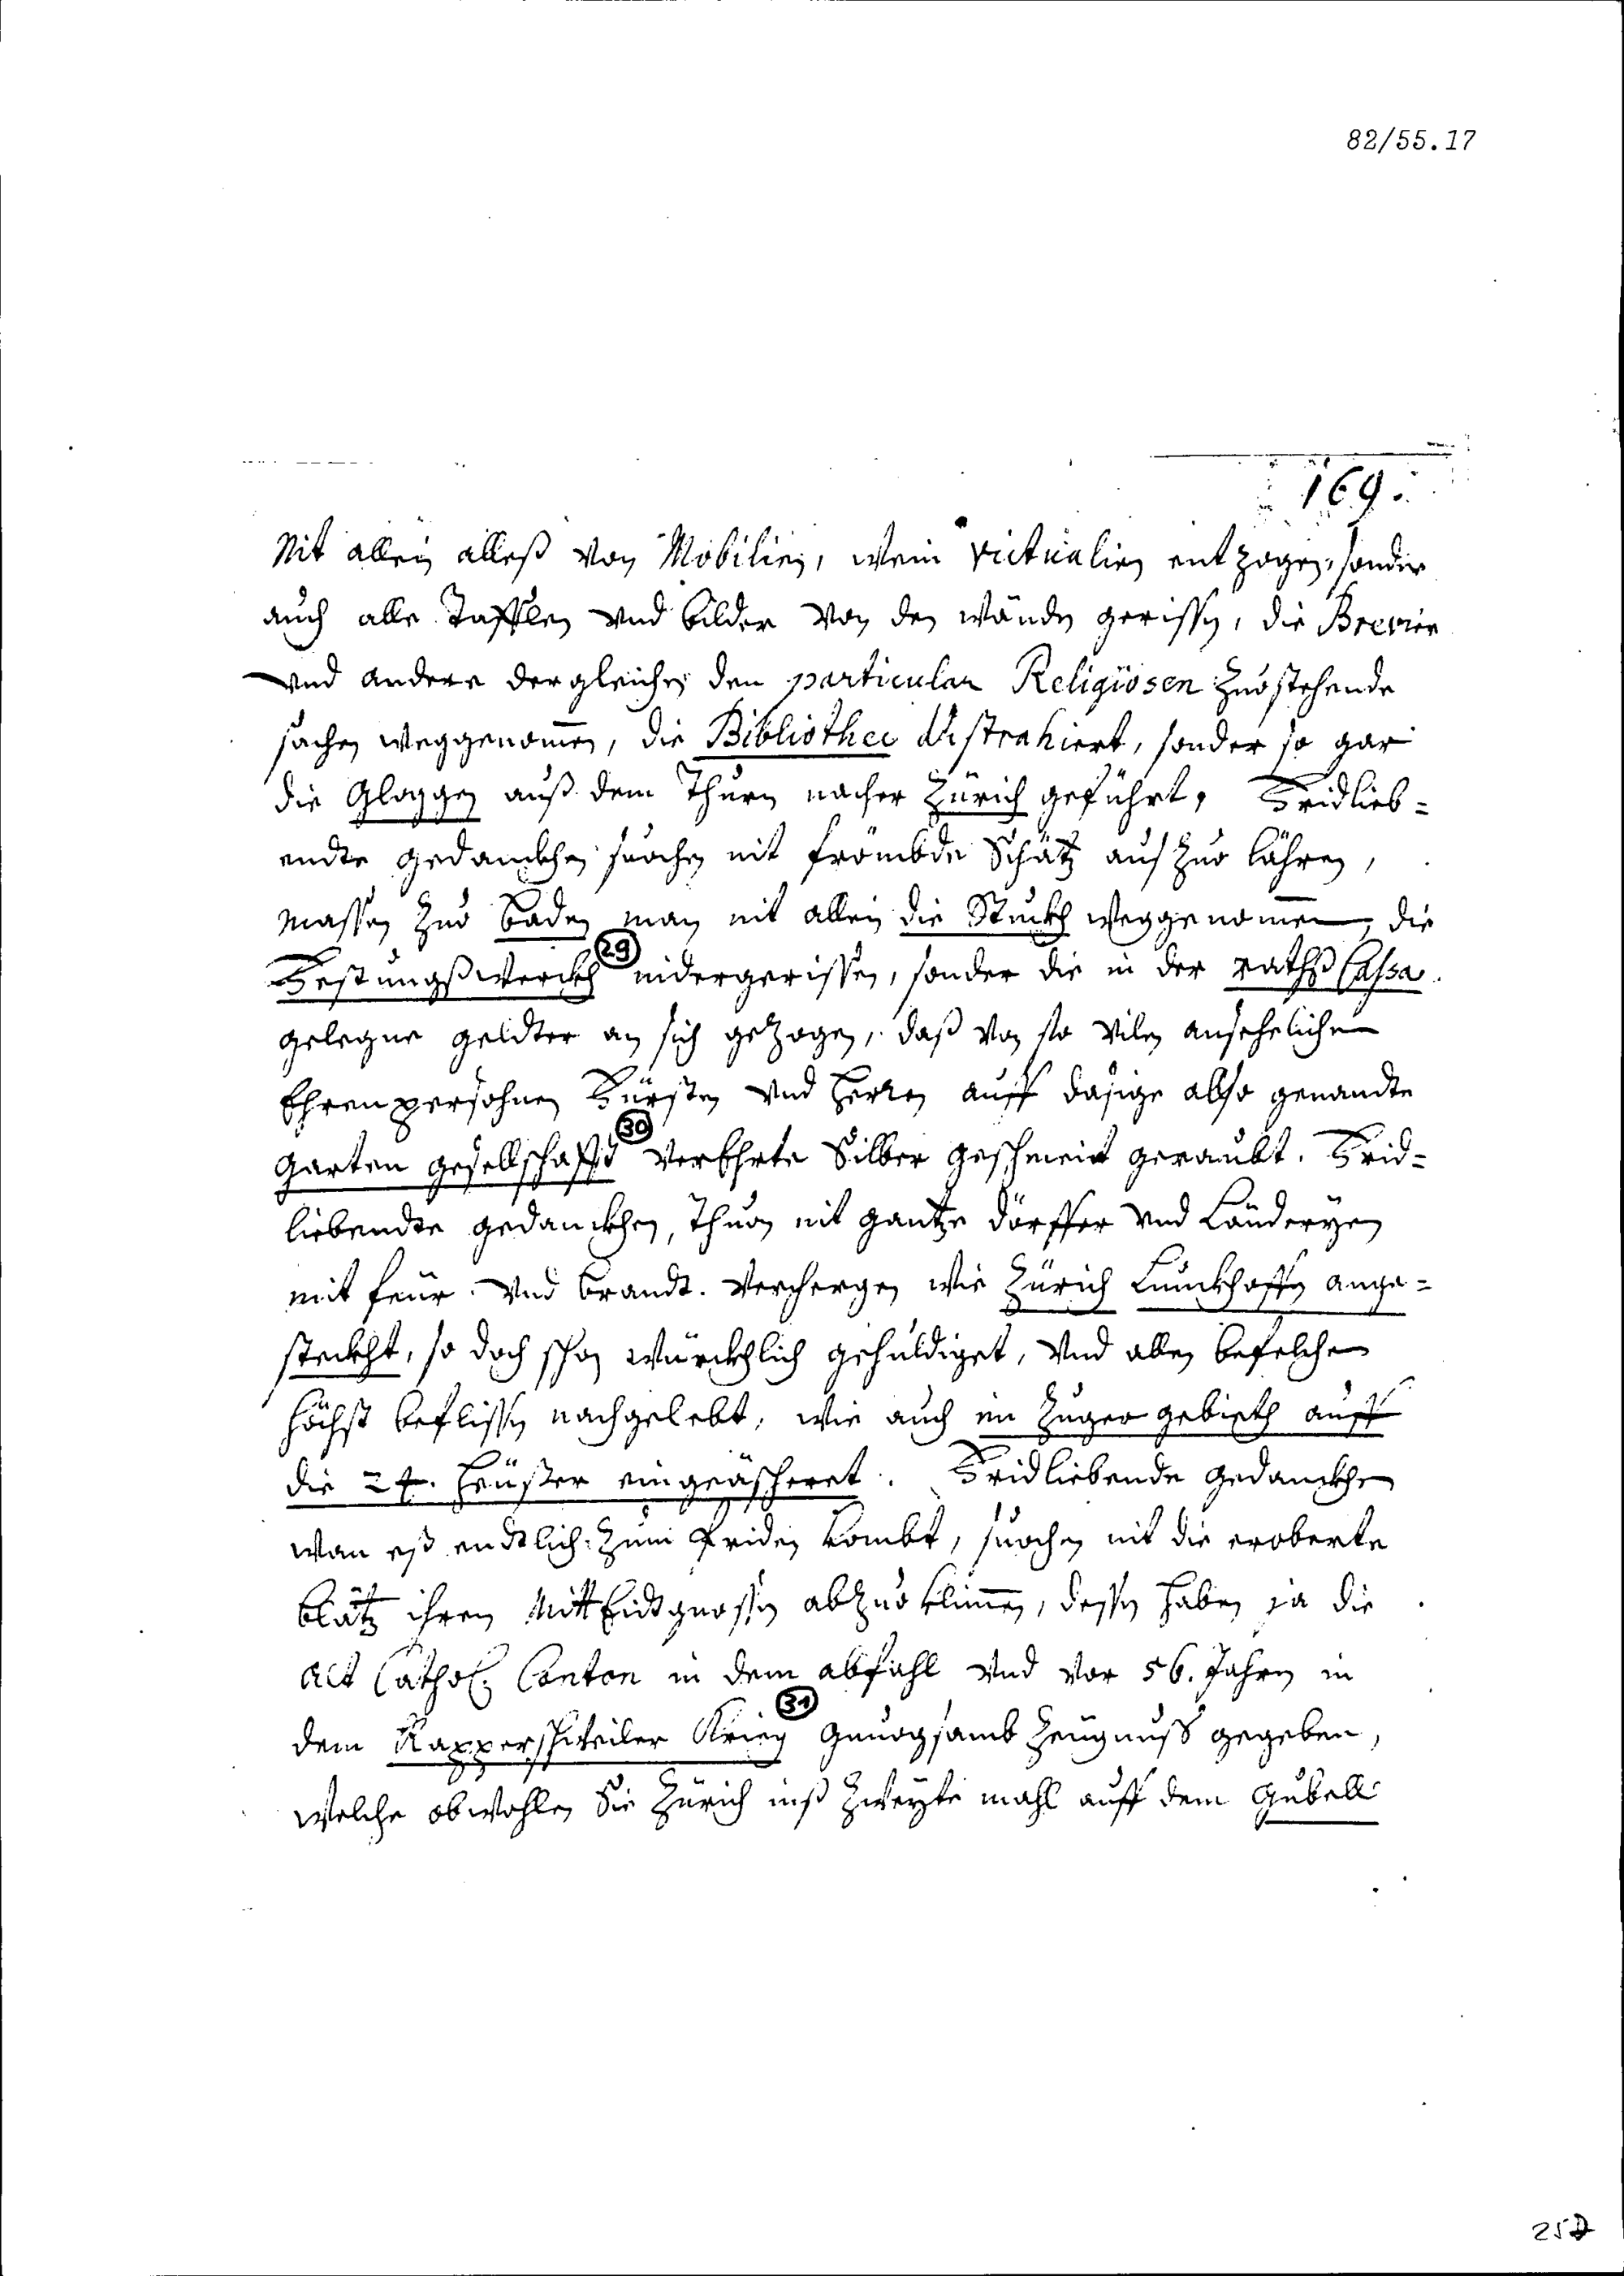 82/55.17
169.
Nit allein alleß von Mobilien, wein victualien entzogen, sonder
auch alle Tafflen vnd bilder von den wänden gerissen, die Brevier
vnd andere dergleichen den particular Religiosen zuostehende
sachen weggenommen, die Bibliothec distrahiert, sonder so gar
die Gloggen auß dem Thurn nacher Zürich geführt, Fridlieb=
endte gedanckhen suochen nit frömbde Schätz auszuo lähren,
massen zuo baden man nit allein die Stuckh weggenommen, die
Festungßwerckh 29 nidergerissen, sonder die in der raths Cassa
gelegne geldter an sich gezogen, daß von so vilen ansehelichen
Ehrenpersohnen Fürsten vnd Herren auff dasige also genandte
garten gesellschafft 30 verEhrte Silber geschmeit geraubt. Frid=
liebendte gedanckhen, thuon nit gantze dörffer vnd Länderyen
mit feür vnd brandt verhergen wie Zürich Lunckhoffen ange=
steckht, so doch schon würckhlich gehuldiget, vnd allen befelchen
höchst beflissen nachgelebt, wie auch im Zuger gebieth auff
die 24. Heüßer eingeäscheret. Fridliebende gedanckhen
wan eß endtlich zum friden kombt, suochen nit die eroberte
blätz ihren MittEidtgnossen abzuo klimmen, dessen haben ja die
Alt Cathol. Canton in dem abfahl vnd vor 56. Jahren in
dem Rapperschweiler Krieg 31 genuogsamb zeugnuss gegeben,
welche obwohlen Sie Zürich inß zweyte mahl auff dem gubell